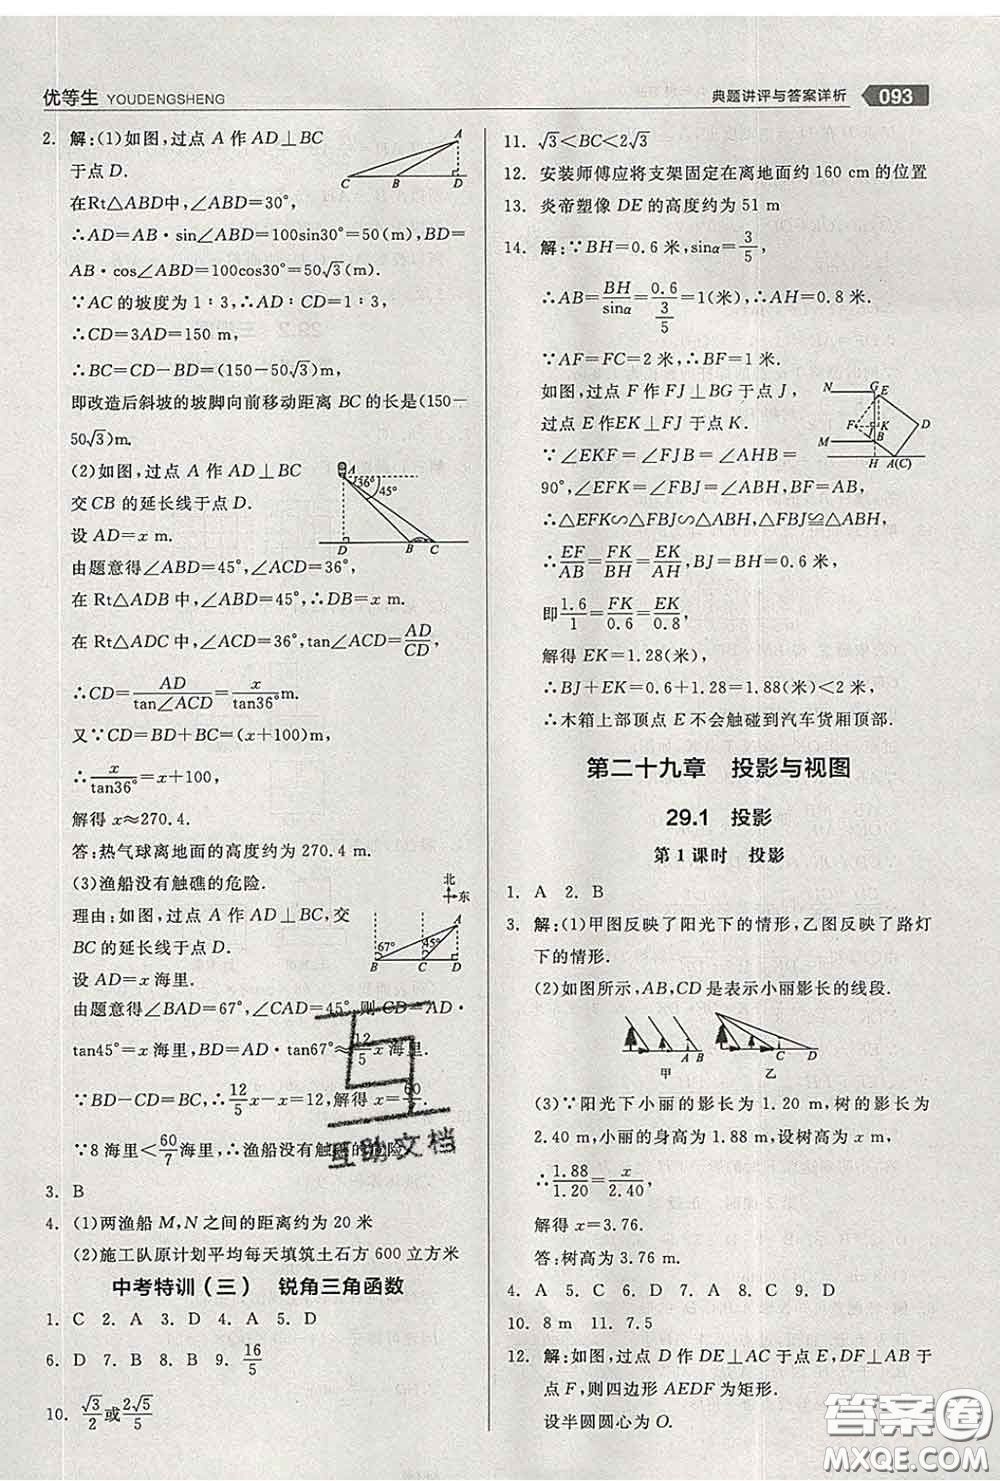 优等生 YOUDENGSHENG
典题讲评与答案详析 093
2. 解:(1)如图,过点 A 作 AD⊥BC
于点 D.
在Rt△ABD中,∠ABD=30°,
∴AD=AB·sin∠ABD=100sin30°=50(m), BD=
AB·cos∠ABD=100cos30°=50√3(m).
∵AC的坡度为1∶3,∴AD∶CD=1∶3,
∴CD=3AD=150 m,
∴BC=CD-BD=(150-50√3)m.
即改造后斜坡的坡脚向前移动距离 BC 的长是(150-
50√3)m.
(2)如图,过点 A 作 AD⊥BC
交 CB 的延长线于点 D.
设 AD=x m.
由题意得∠ABD=45°,∠ACD=36°,
在 Rt△ADB 中,∠ABD=45°,∴DB=x m.
在 Rt△ADC 中,∠ACD=36°,tan∠ACD=AD/CD,
∴CD=AD/tan∠ACD=x/tan36° m.
又∵CD=BD+BC=(x+100)m,
∴x/tan36°=x+100,
解得 x≈270.4.
答:热气球离地面的高度约为 270.4 m.
(3)渔船没有触礁的危险.
理由:如图,过点 A 作 AD⊥BC,交
BC 的延长线于点 D.
设 AD=x 海里.
由题意得∠BAD=67°,∠CAD=45°,则 CD=AD·
tan45°=x 海里,BD=AD·tan67°≈12/5 x 海里.
∵BD-CD=BC,∴12/5 x-x=12,解得 x=60/7.
∵8 海里<60/7 海里,∴渔船没有触礁的危险.
3. B
4. (1)两渔船 M,N 之间的距离约为 20 米
(2)施工队原计划平均每天填筑土石方 600 立方米
中考特训(三) 锐角三角函数
1. C 2. A 3. D 4. A 5. D
6. D 7. B 8. B 9. 16/5
10. √3/2或2√5/5
A
C B D
A 36° 45°
D B C
北
东
A
67° 45°
B C D
11. √3<BC<2√3
12. 安装师傅应将支架固定在离地面约 160 cm 的位置
13. 炎帝塑像 DE 的高度约为 51 m
14. 解:∵BH=0.6 米,sinα=3/5,
∴AB=BH/sinα=0.6/(3/5)=1(米),∴AH=0.8 米.
∵AF=FC=2 米,∴BF=1 米.
如图,过点 F 作 FJ⊥BG 于点 J,
过点 E 作EK⊥FJ于点 K.
∵∠EKF=∠FJB=∠AHB=
90°,∠EFK=∠FBJ=∠ABH,BF=AB,
∴△EFK∽△FBJ∽△ABH,△FBJ≌△ABH,
∴EF/AB=FK/BH=EK/AH,BJ=BH=0.6 米,
即1.6/1=FK/0.6=EK/0.8,
解得 EK=1.28(米),
∴BJ+EK=0.6+1.28=1.88(米)<2 米,
∴木箱上部顶点 E 不会触碰到汽车货厢顶部.
N G E
F J K D
M B
H A(C)
第二十九章 投影与视图
29.1 投影
第 1 课时 投影
1. A 2. B
3. 解:(1)甲图反映了阳光下的情形,乙图反映了路灯
下的情形.
(2)如图所示,AB,CD 是表示小丽影长的线段.
A B C D
甲 乙
(3)∵阳光下小丽的影长为 1.20 m,树的影长为
2.40 m,小丽的身高为 1.88 m,设树高为 x m,
∴1.88/1.20=x/2.40,
解得 x=3.76.
答:树高为 3.76 m.
4. A 5. C 6. D 7. D 8. A 9. C
10. 8 m 11. 7.5
12. 解:如图,过点 D 作 DE⊥AC于点 E,DF⊥AB于
点 F,则四边形 AEDF 为矩形.
设半圆圆心为 O.
互助文档
答案圈
MXQE.COM